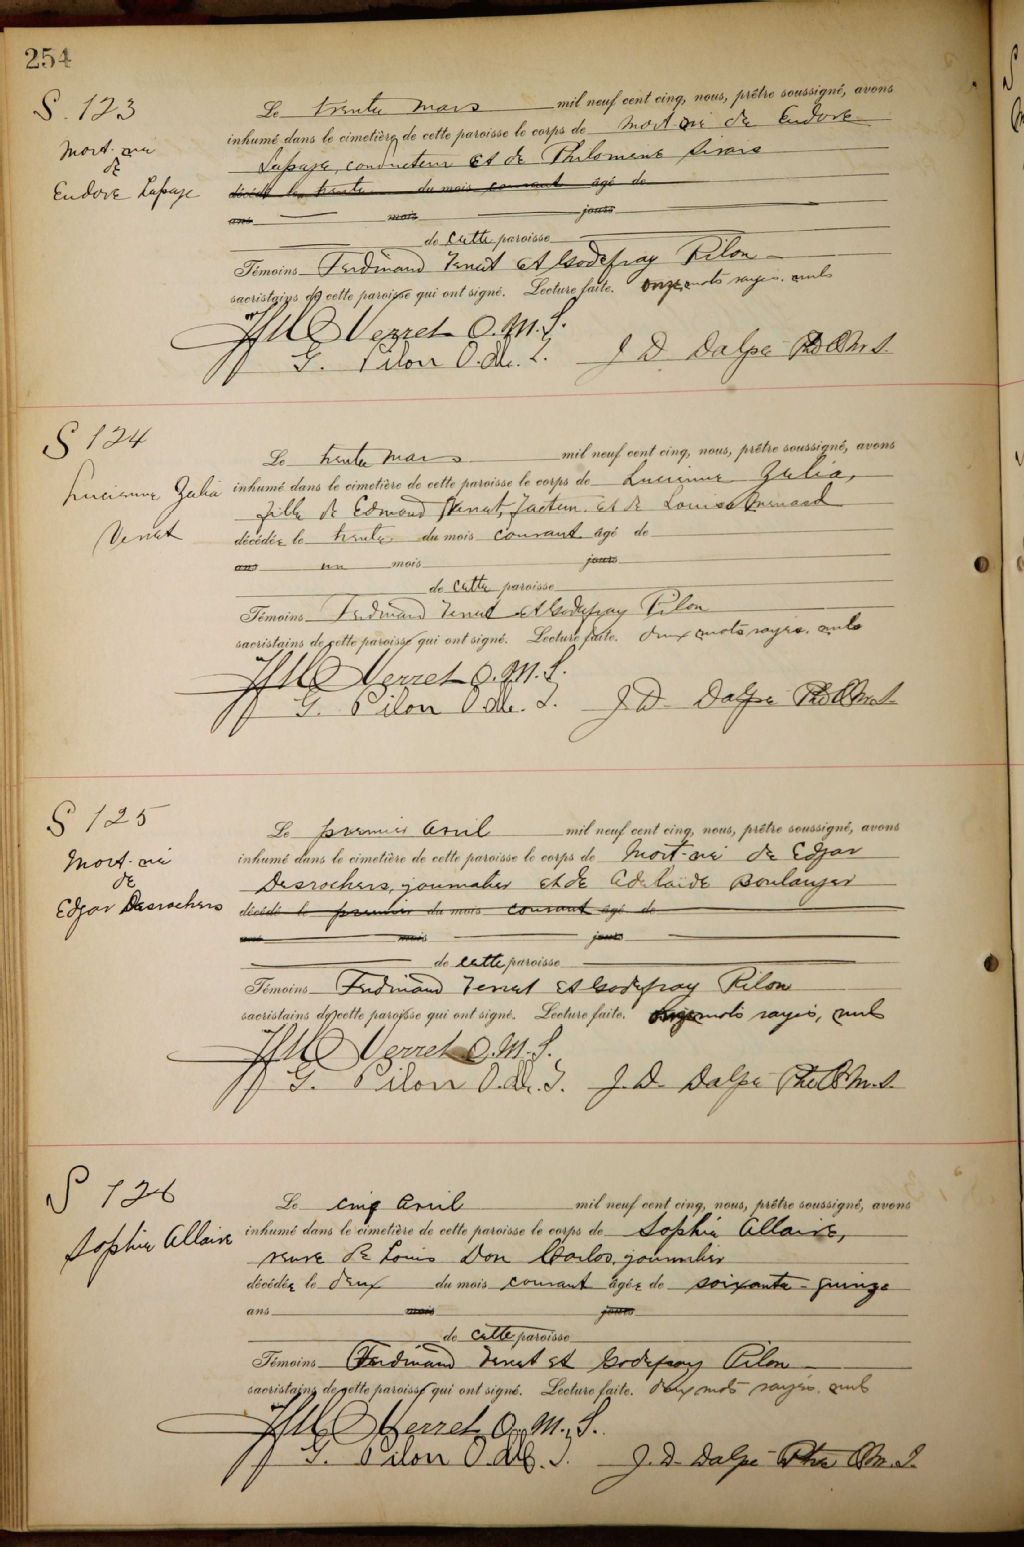 254
S. 123
Mort-né
de
Eudore Lepage
Le trente mars mil neuf cent cinq, nous, prêtre soussigné, avons
inhumé dans le cimetière de cette paroisse le corps de Mort-né de Eudore
Lepage, conducteur et de Philomène Sirois
décédé le trente du mois courant âgé de
ans mois jours
de cette paroisse
Témoins Ferdinand Verret et Godefroy Pilon
sacristains de cette paroisse qui ont signé. Lecture faite. onze mots rayés, nuls
Verret O.M.I.
G. Pilon O.M.I. J. D. Dalpé Ptre O.M.I.
S 124
Lucienne Zélia
Verret
Le trente mars mil neuf cent cinq, nous, prêtre soussigné, avons
inhumé dans le cimetière de cette paroisse le corps de Lucienne Zélia,
fille de Edmond Verret, facteur et de Louise
décédée le trente du mois courant âgé de
ans un mois jours
de cette paroisse
Témoins Ferdinand Verret et Godefroy Pilon
sacristains de cette paroisse qui ont signé. Lecture faite. deux mots rayés, nuls
Verret O.M.I.
G. Pilon O.M.I. J. D. Dalpé Ptre O.M.I.
S 125
Mort-né
de
Edgar Desrochers
Le premier avril mil neuf cent cinq, nous, prêtre soussigné, avons
inhumé dans le cimetière de cette paroisse le corps de Mort-né de Edgar
Desrochers, journalier et de Adelaïde Boulanger
décédé le premier du mois courant âgé de
ans mois jours
de cette paroisse
Témoins Ferdinand Verret et Godefroy Pilon
sacristains de cette paroisse qui ont signé. Lecture faite. onze mots rayés, nuls
Verret O.M.I.
G. Pilon O.M.I. J. D. Dalpé Ptre O.M.I.
S 126
Sophie Allaire
Le cinq avril mil neuf cent cinq, nous, prêtre soussigné, avons
inhumé dans le cimetière de cette paroisse le corps de Sophie Allaire,
veuve de Louis Don Carlos, journalier
décédée le deux du mois courant âgée de soixante-quinze
ans mois jours
de cette paroisse
Témoins Ferdinand Verret et Godefroy Pilon
sacristains de cette paroisse qui ont signé. Lecture faite. deux mots rayés, nuls
Verret O.M.I.
G. Pilon O.M.I. J. D. Dalpé Ptre O.M.I.